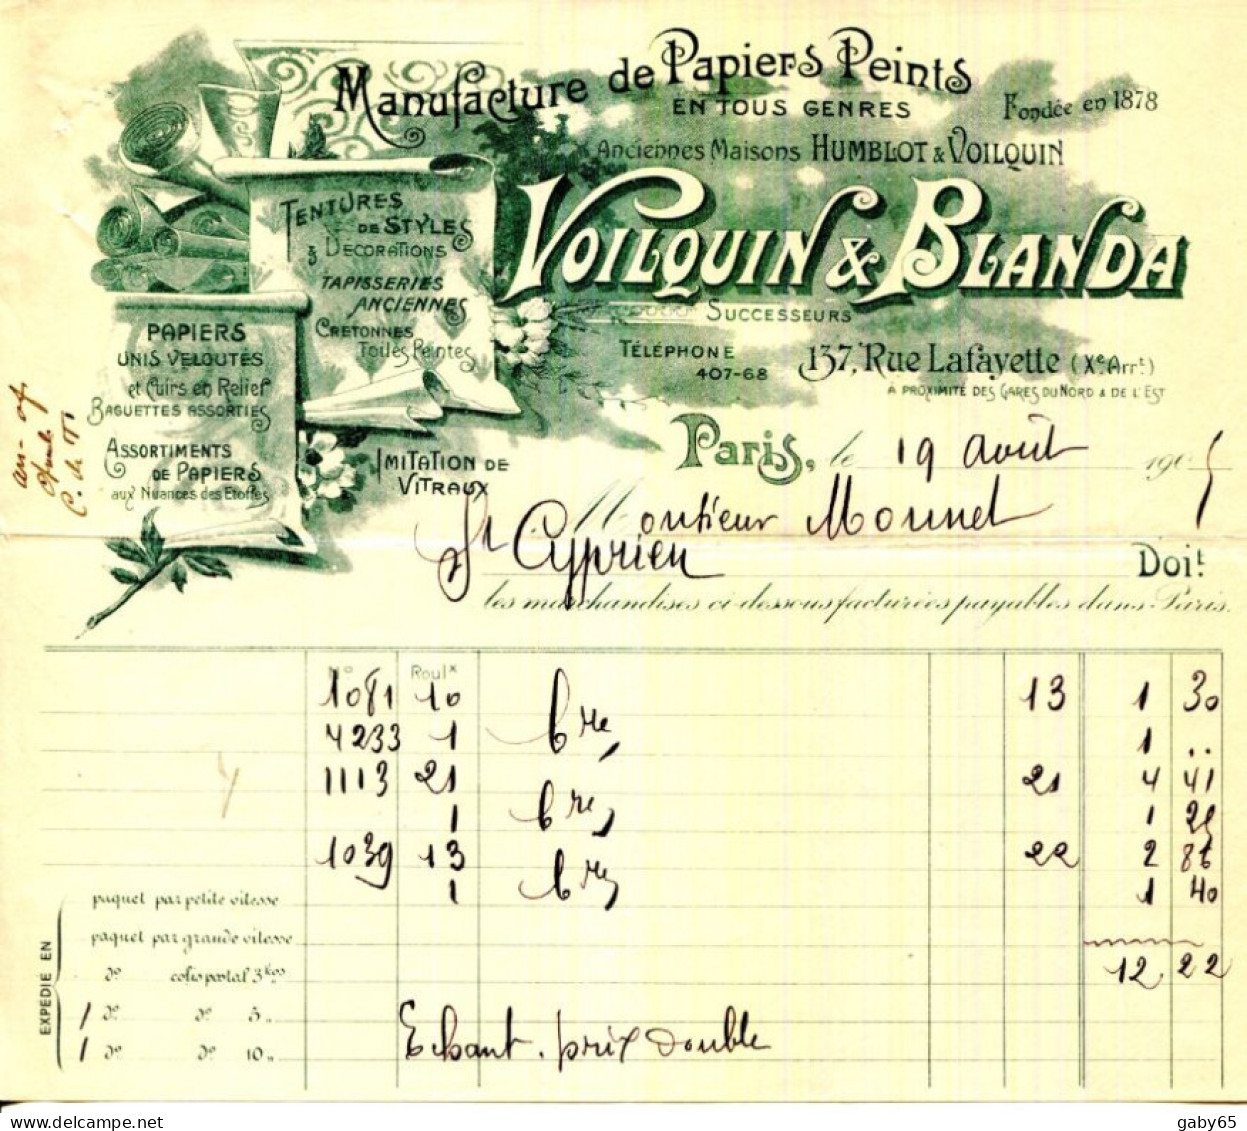 Manufacture de Papiers Peints
EN TOUS GENRES
Fondée en 1878
Anciennes Maisons HUMBLOT & VOILQUIN
VOILQUIN & BLANDA
SUCCESSEURS
TÉLÉPHONE
407-68
137, Rue Lafayette (Xe Arrt)
A PROXIMITÉ DES GARES DU NORD & DE L'EST
TENTURES
DE STYLES
& DECORATIONS
TAPISSERIES
ANCIENNES
CRETONNES
Toiles Peintes
PAPIERS
UNIS VELOUTÉS
et Cuirs en Relief
BAGUETTES ASSORTIES
ASSORTIMENTS
DE PAPIERS
aux Nuances des Etoffes
IMITATION DE
VITRAUX
Paris, le 19 août 1905
Monsieur Monnet
St Cyprien
Doit
les marchandises ci-dessous facturées payables dans Paris.
No Roulx
1081 10 bre, 13 1 30
4233 1 1 ..
1113 21 21 4 41
1 bre, 1 25
1039 13 22 2 86
1 bre, 1 40
12 22
EXPÉDIÉ EN
paquet par petite vitesse
paquet par grande vitesse
do colis postal 3 kos
1 do do 5 "
1 do do 10 "
Echant. prix double
delcampe.net
gaby65